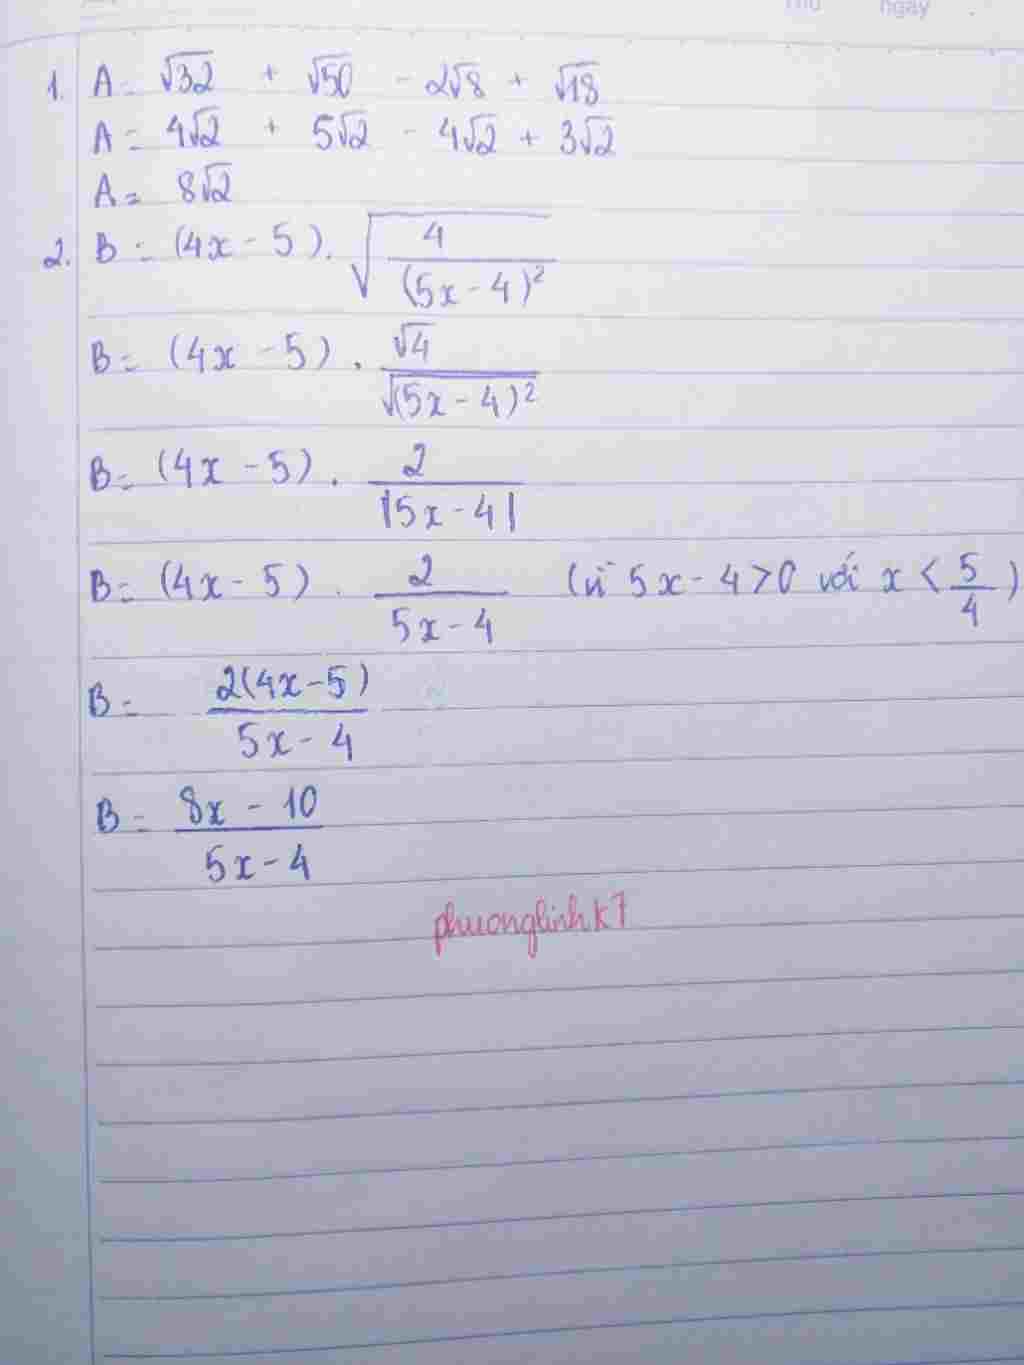 Thứ ngày
1. A = √32 + √50 - 2√8 + √18
A = 4√2 + 5√2 - 4√2 + 3√2
A = 8√2
2. B = (4x - 5). √(4/(5x - 4)²)
B = (4x - 5) . √4/√(5x - 4)²
B = (4x - 5) . 2/|5x - 4|
B = (4x - 5) . 2/(5x - 4) (vì 5x - 4 > 0 với x < 5/4)
B = 2(4x - 5)/(5x - 4)
B = (8x - 10)/(5x - 4)
phuonglinhk7